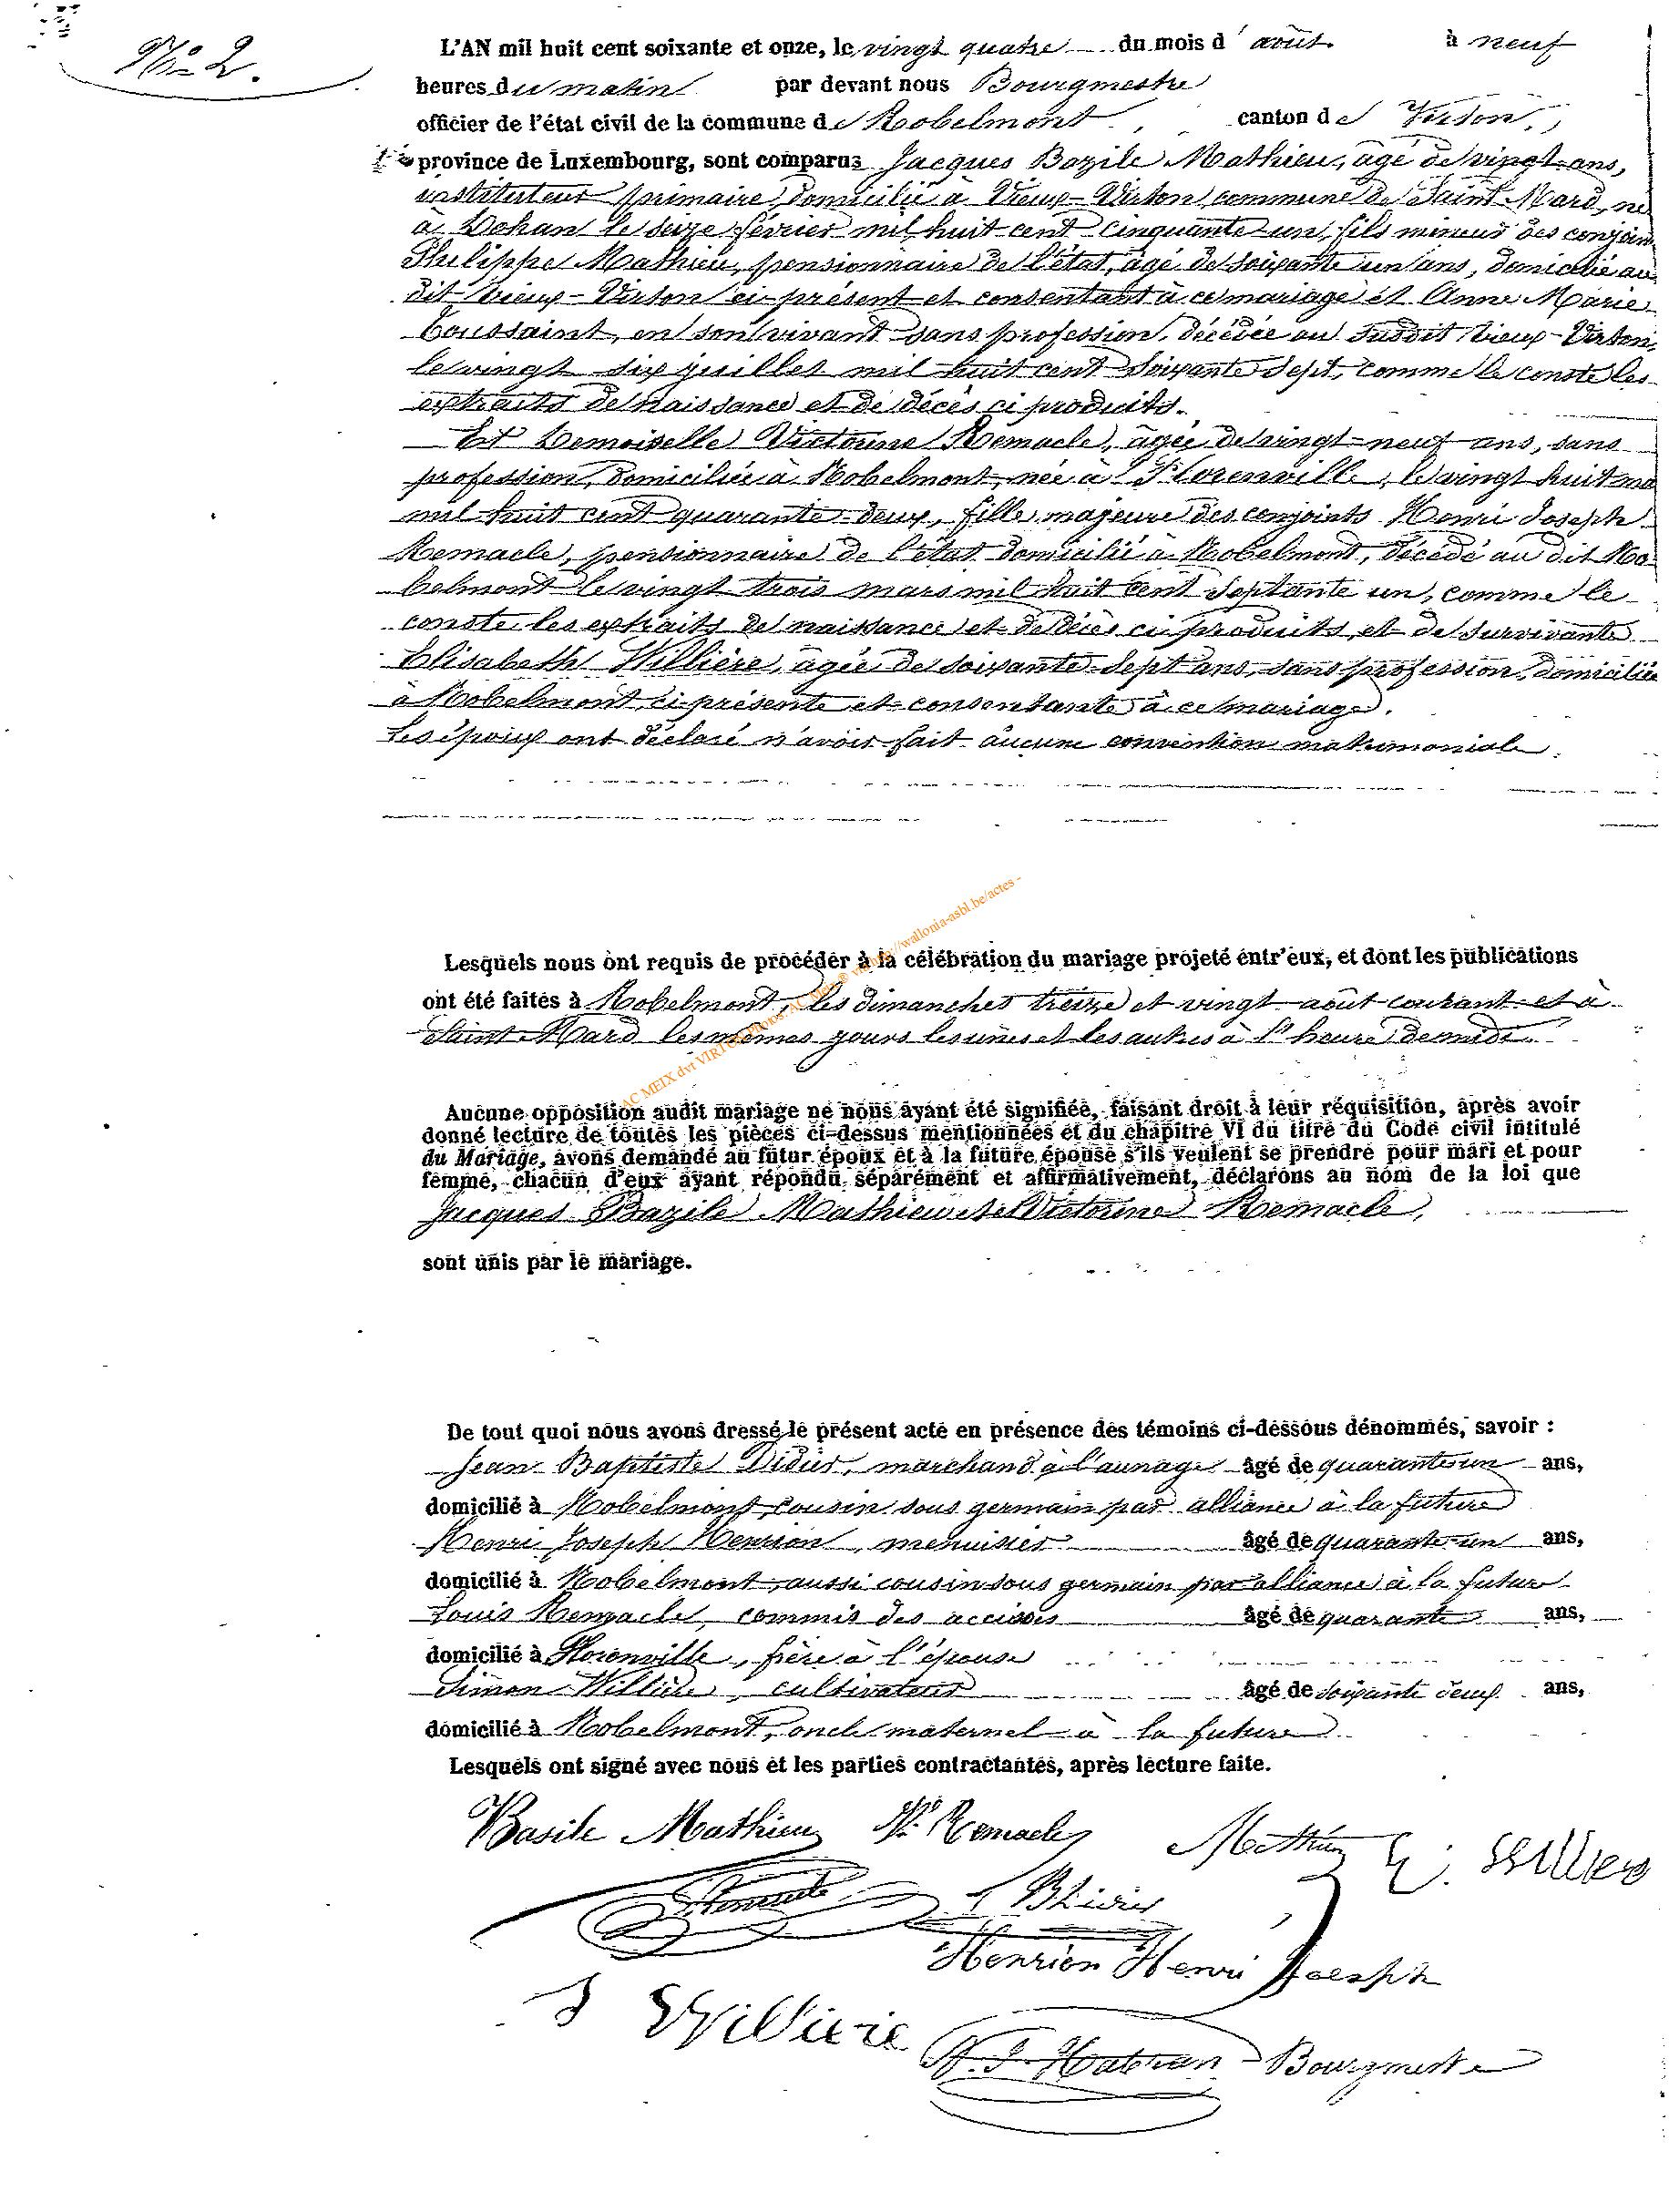 N° 2.
L'AN mil huit cent soixante et onze, le vingt quatre du mois d' août à neuf
heures du matin par devant nous Bourgmestre
officier de l'état civil de la commune de Robelmont canton de Virton,
province de Luxembourg, sont comparus Jacques Bazile Mathieu, âgé de vingt ans,
instituteur primaire, domicilié à Vieux-Virton commune de Saint Mard, né
à Dohan le seize février mil huit cent cinquante un, fils mineur des conjoin
Philippe Mathieu, pensionnaire de l'état, âgé de soixante un ans, domicilié au
dit Vieux-Virton ci-présent et consentant à ce mariage et Anne Marie
Toussaint, en son vivant sans profession, décédée au susdit Vieux-Virton,
le vingt six juillet mil huit cent soixante sept, comme le conste les
extraits de naissance et de décès ci produits.
Et Demoiselle Victorine Remacle, âgée de vingt-neuf ans, sans
profession, domiciliée à Robelmont, née à Florenville, le vingt huit ma
mil huit cent quarante-deux, fille majeure des conjoints Henri Joseph
Remacle, pensionnaire de l'état domicilié à Robelmont, décédé au dit Ro-
belmont le vingt trois mars mil huit cent septante un, comme le
conste les extraits de naissance et de décès ci-produits, et de survivante
Elisabeth Willière, âgée de soixante-sept ans, sans profession, domiciliée
à Robelmont, ci-présente et consentante à ce mariage.
Les époux ont déclaré n'avoir fait aucune convention matrimoniale.
AC MEIX dvt VIRTON wallonia-asbl.be/actes -
Lesquels nous ont requis de procéder à la célébration du mariage projeté entr'eux, et dont les publications
ont été faites à Robelmont, les dimanches treize et vingt août courant et à
Saint Mard les mêmes jours les unes et les autres à l'heure de midi.
Aucune opposition audit mariage ne nous ayant été signifiée, faisant droit à leur réquisition, après avoir
donné lecture de toutes les pièces ci-dessus mentionnées et du chapitre VI du titre du Code civil intitulé
du Mariage, avons demandé au futur époux et à la future épouse s'ils veulent se prendre pour mari et pour
femme, chacun d'eux ayant répondu séparément et affirmativement, déclarons au nom de la loi que
Jacques Bazile Mathieu et Victorine Remacle,
sont unis par le mariage.
De tout quoi nous avons dressé le présent acte en présence des témoins ci-dessous dénommés, savoir :
Jean Baptiste Didier, marchand à l'aunage âgé de quarante un ans,
domicilié à Robelmont, cousin sous germain par alliance à la future
Henri Joseph Henrion, menuisier âgé de quarante-un ans,
domicilié à Robelmont, aussi cousin sous germain par alliance à la future
Louis Remacle, commis des accises âgé de quarante ans,
domicilié à Florenville, frère à l'épouse
Simon Willière, cultivateur âgé de soixante deux ans,
domicilié à Robelmont, oncle maternel à la future
Lesquels ont signé avec nous et les parties contractantes, après lecture faite.
Basile Mathieu Vne Remacle Mathieu
Remacle
Henrion Henri Joesph
S Willière
Bourgmestre